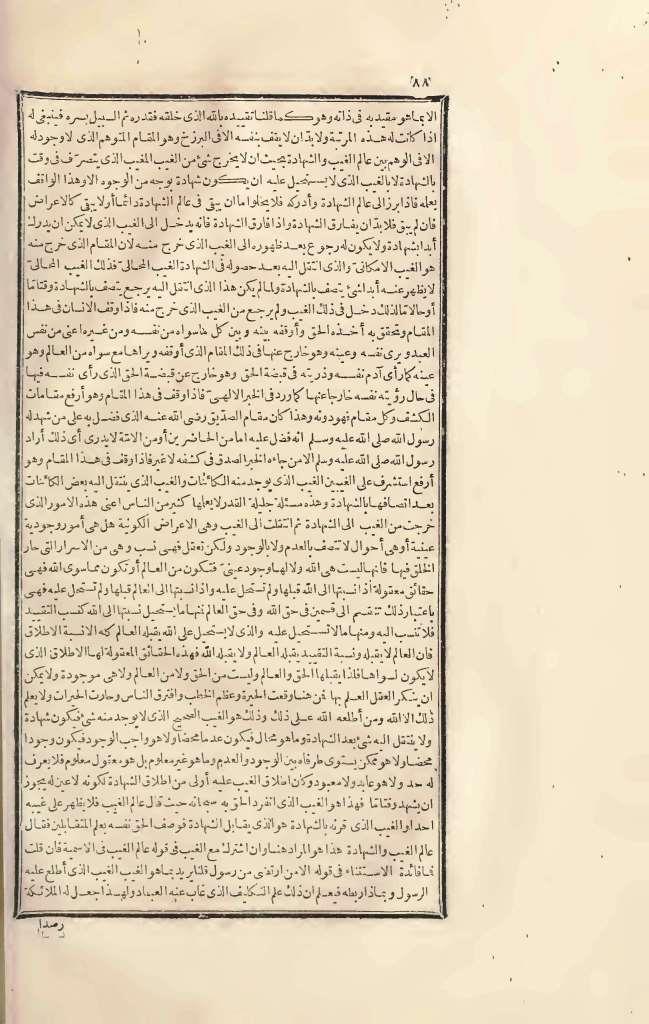 ٨٨
الا بما هو مقيد به في ذاته وهو كما قلنا تقيده بالله الذى خلقه فقدره ثم السبيل يسره فينبغى له
اذا كانت له هذه المرتبة ولا بد أن لا يقف بنفسه الا فى البرزخ وهو المقام المتوهم الذى لا وجود له
الا فى الوهم بين عالم الغيب والشهادة بحيث ان لا يخرج شئ من الغيب المغيب الذى يتصرف فى وقت
بالشهادة لا بالغيب الذى لا يستحيل عليه ان يكون شهادة بوجه من الوجوه الا وهذا الواقف
يعلمه فاذا برز الى عالم الشهادة وأدركه فلا يخلو اما ان يبقى فى عالم الشهادة دائما أو لا يبقى كالاعراض
فان لم يبق فلا بد ان يفارق الشهادة واذا فارق الشهادة فانه يدخل الى الغيب الذى لا يمكن ان يدرك
أبدا شهادة ولا يكون له رجوع بعد ظهوره الى الغيب الذى خرج منه لان المقام الذى خرج منه
هو الغيب الامكانى والذى انتقل اليه بعد حصوله فى الشهادة الغيب المحالى فذلك الغيب المحالى
لا يظهر عنه أبدا شئ يتصف بالشهادة ولما لم يكن هذا الذى انتقل اليه يرجع يتصف بالشهادة وقتا ما
أو حالا ما لذلك دخل فى ذلك الغيب ولم يرجع من الغيب الذى خرج منه فاذا وقف الانسان فى هذا
المقام وتحقق به أخذه الحق وأوقفه بينه وبين كل ما سواه من نفسه ومن غيره اعنى من نفس
العبد ويرى نفسه وعينه وهو خارج عنها فى ذلك المقام الذى أوقفه ويراها مع سواه من العالم وهو
عينه كما رأى آدم نفسه وذريته فى قبضة الحق وهو خارج عن قبضة الحق الذى رأى نفسه فيها
فى حال رؤيته نفسه خارجا عنها كما ورد فى الخبر الالهى فاذا وقف فى هذا المقام وهو أرفع مقامات
الكشف وكل مقام فهو دونه وهذا كان مقام الصديق رضى الله عنه الذى فضل به على من شهد له
رسول الله صلى الله عليه وسلم انه فضل عليه اما من الحاضرين أو من الامة لا يدرى أى ذلك أراد
رسول الله صلى الله عليه وسلم الا من جاءه الخبر الصدق فى كشفه لا غير فاذا وقف فى هذا المقام وهو
أرفع استشرف على الغيبين الغيب الذى يوجد منه الكائنات والغيب الذى ينتقل اليه بعض الكائنات
بعد اتصافها بالشهادة وهذه مسئلة جليلة القدر لا يعلمها كثير من الناس اعنى هذه الامور الذى
خرجت من الغيب الى الشهادة ثم انتقلت الى الغيب وهى الاعراض الكونية هل هى أمور وجودية
عينية أو هى أحوال لا تتصف بالعدم ولا بالوجود ولكن تعقل فهى نسب وهى من الاسرار التى حار
الخلق فيها فانها ليست هى الله ولا لها وجود عينى فتكون من العالم أو تكون مما سوى الله فهى
حقائق معقولة اذا نسبتها الى الله قبلها ولم تستحل عليه واذا نسبتها الى العالم قبلها ولم تستحل عليه فهى
باعتبار ذلك تنقسم الى قسمين فى حق الله وفى حق العالم فمنها ما يستحيل نسبتها الى الله كنسب التقييد
فلا تنسب اليه ومنها ما لا تستحيل عليه والذى لا يستحيل على الله يقبله العالم كله الا نسبة الاطلاق
فان العالم لا يقبله ونسبة التقييد يقبله العالم ولا يقبله الله فهذه الحقائق المعقولة لها الاطلاق الذى
لا يكون لسواها فلذا يقبلها الحق والعالم وليست من الحق ولا من العالم ولا هى موجودة ولا يمكن
ان ينكر العقل العلم بها فمن هنا وقعت الحيرة وعظم الخطب وافترق الناس وحارت الحيرات ولا يعلم
ذلك الا الله ومن أطلعه الله على ذلك وذلك هو الغيب الصحيح الذى لا يوجد منه شئ فيكون شهادة
ولا ينتقل اليه شئ بعد الشهادة وما هو محال فيكون عدما محضا ولا هو واجب الوجود فيكون وجودا
محضا ولا هو ممكن يستوى طرفاه بين الوجود والعدم وما هو غير معلوم بل هو معقول معلوم فلا يعرف
له حد ولا هو عابد ولا معبود وكان اطلاق الغيب عليه أولى من اطلاق الشهادة لكونه لا عين له يجوز
ان يشهد وقتا ما فهذا هو الغيب الذى انفرد الحق به سبحانه حيث قال عالم الغيب فلا يظهر على غيبه
احدا والغيب الذى قرنه بالشهادة هو الذى يقابل الشهادة فوصف الحق نفسه بعلم المتقابلين فقال
عالم الغيب والشهادة هذا هو المراد هنا وان اشترك مع الغيب فى قوله عالم الغيب فى الاسمية فان قلت
فما فائدة الاستثناء فى قوله الا من ارتضى من رسول قلنا يريد بما هو الغيب الغيب الذى أطلع عليه
الرسول وبماذا ربطه فيعلم ان ذلك علم التكاليف الذى غاب عنه العباد ولهذا جعل له الملائكة
رصدا